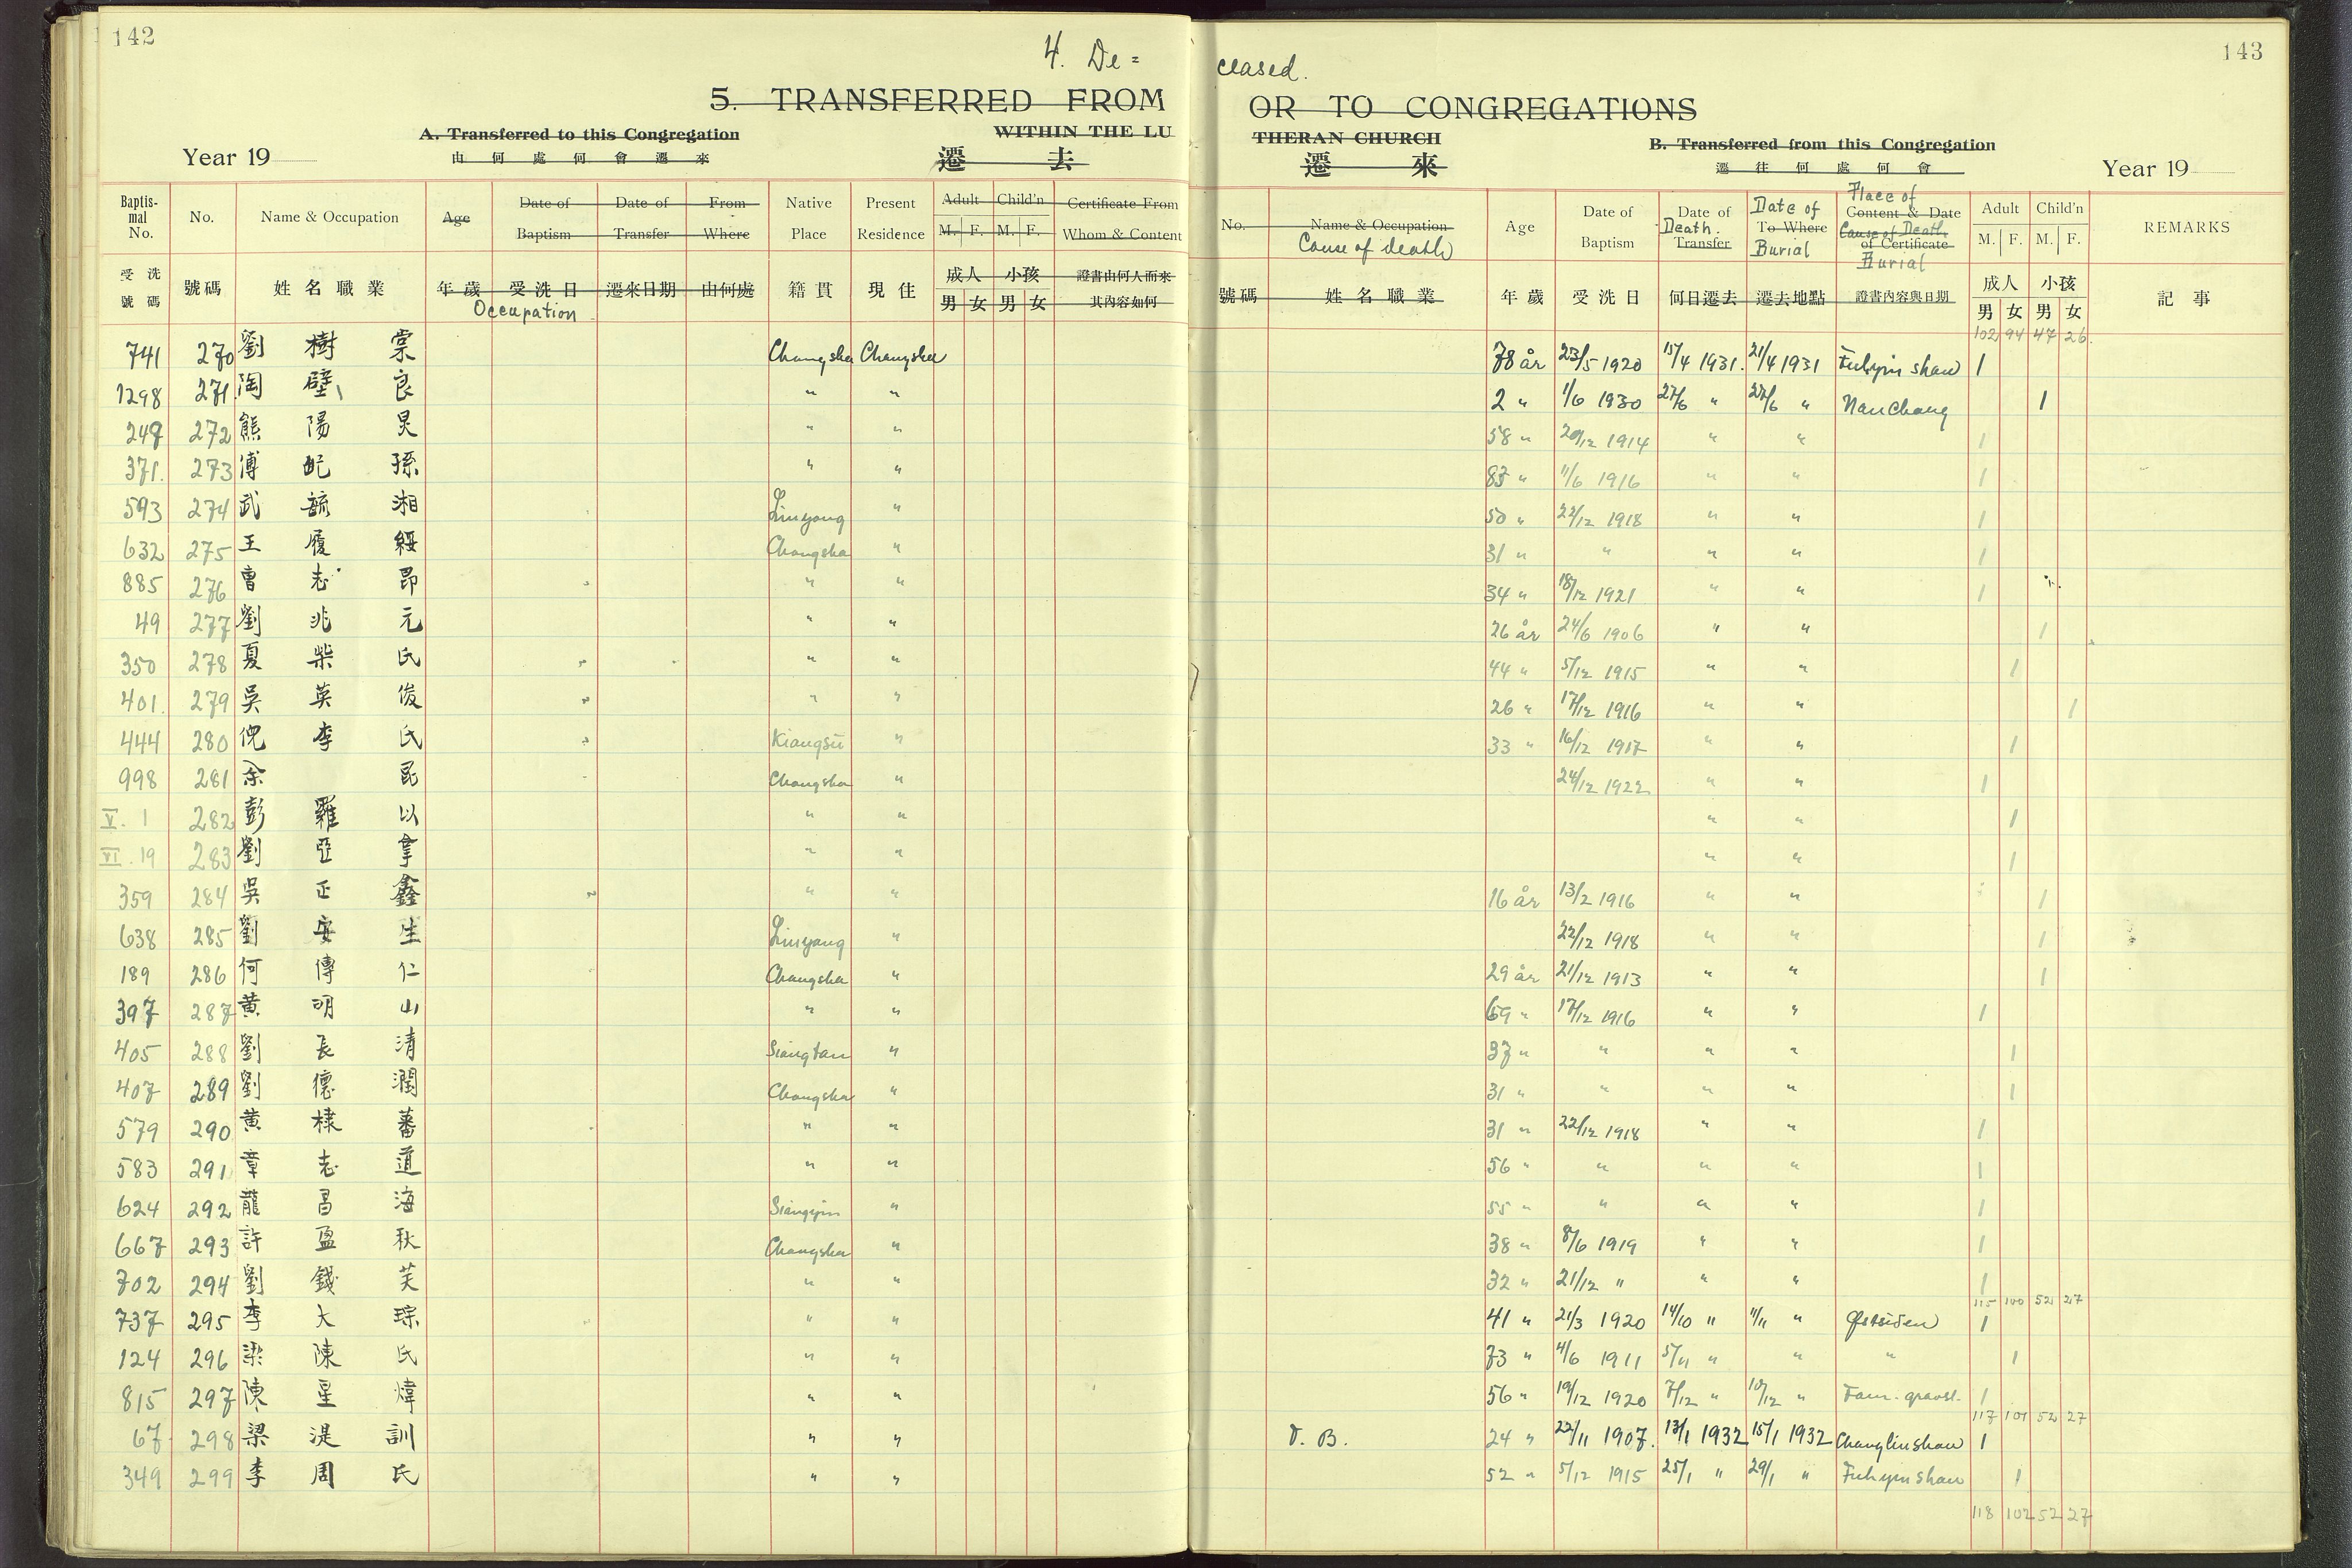 142
143
4. De=
ceased.
5. TRANSFERRED FROM
OR TO CONGREGATIONS
A. Transferred to this Congregation
WITHIN THE LU
THERAN CHURCH
B. Transferred from this Congregation
Year 19
由何處何會遷來
遷去
遷來
遷往何處何會
Year 19
Baptismal No. No. Name & Occupation Age Date of Baptism Date of Transfer From Where Native Place Present Residence Adult M. F. Child'n M. F. Certificate From Whom & Content
No. Name & Occupation Cause of death Age Date of Baptism Date of Death. Transfer Date of To Where Burial Place of Content & Date Cause of Death of Certificate Burial Adult M. F. Child'n M. F. REMARKS
受洗號碼 號碼 姓名職業 年歲 受洗日 遷來日期 由何處 籍貫 現住 成人 男 女 小孩 男 女 證書由何人而來其內容如何
Occupation
號碼 姓名職業 年歲 受洗日 何日遷去 遷去地點 證書內容與日期 成人 男 女 小孩 男 女 記事
102 94 47 26
741 270 劉樹棠 Changsha Changsha 78 år 23/5 1920 15/4 1931. 21/4 1931 Fuhyin shan 1
1298 271. 陶壁良 " " 2 " 1/6 1930 27/6 " 27/6 " Nanchang 1
248 272 熊陽炅 " " 58 " 20/12 1914 " " 1
371. 273 傅妃孫 " " 83 " 11/6 1916 " " 1
593 274 武毓湘 Liuyang " 50 " 22/12 1918 " " 1
632 275 王履綏 Changsha " 31 " " " " 1
885 276 曹志昂 " " 34 " 18/12 1921 " " 1
49 277 劉兆元 " " 26 år 24/6 1906 " " 1
350 278 夏柴氏 " " 44 " 5/12 1915 " " 1
401. 279 吳英俊 " " 26 " 17/12 1916 " " 1
444 280 倪李氏 Kiangsü " 33 " 16/12 1917 " " 1
998 281 余昆 Changsha " 24/12 1922 " " 1
V. 1 282 彭羅以 " " " " 1
VI. 19 283 劉亞拿 " " " " 1
359 284 吳正鑫 " " 16 år 13/2 1916 " " 1
638 285 劉安生 Liuyang " 22/12 1918 " " 1
189 286 何傳仁 Changsha " 29 år 21/12 1913 " " 1
397 287 黄明山 " " 69 " 17/12 1916 " " 1
405 288 劉長清 Siangtan " 37 " " " " 1
407 289 劉德潤 Changsha " 31 " " " " 1
579 290 黄棣蕃 " " 31 " 22/12 1918 " " 1
583 291 章志道 " " 56 " " " " 1
624 292 龍昌海 Siangyin " 55 " " " " 1
667 293 許盈秋 Changsha " 38 " 8/6 1919 " " 1
702 294 劉錢芙 " " 32 " 21/12 " " " 1
115 100 52 27
737 295 李大琮 " " 41 " 21/3 1920 14/10 " 1/11 " Østsiden 1
124 296 梁陳氏 " " 73 " 4/6 1911 5/11 " " " 1
815 297 陳星煒 " " 56 " 19/12 1920 7/12 " 10/12 " Fam. gravst. 1
117 101 52 27
67 298 梁湜訓 " " T. B. 24 " 22/11 1907. 13/1 1932 15/1 1932 Changlinshan 1
349 299 李周氏 " " 52 " 5/12 1915 25/1 " 29/1 " Fuhyin shan 1
118 102 52 27